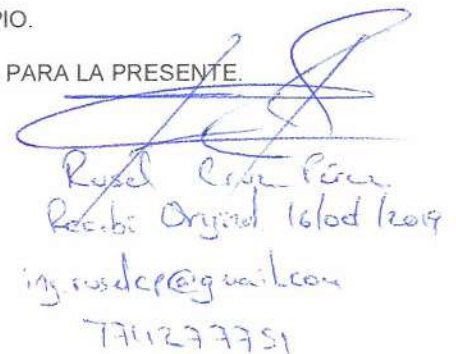 PIO.
PARA LA PRESENTE.
Rusel Cruz Pérez
Recibi Original 16/oct/2019
ing.ruselcp@gmail.com